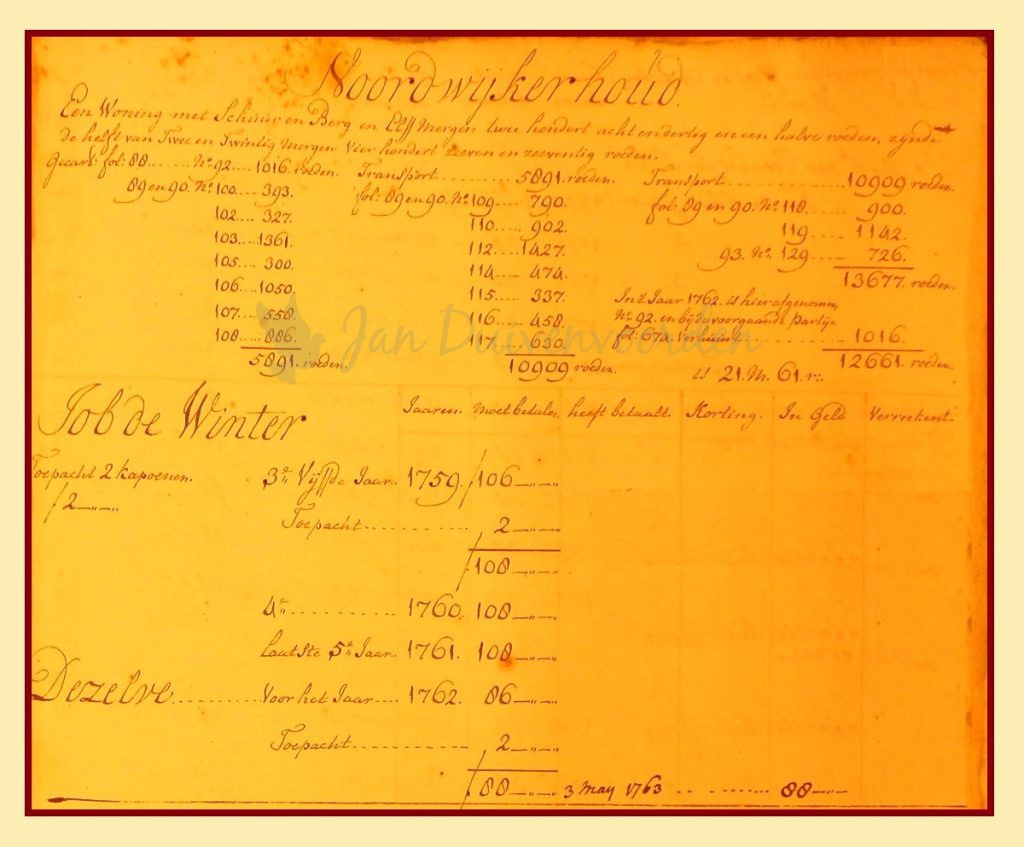 Noordwijkerhoud.
Een Woning met Schuur en Berg en Elff Mergen twee hondert acht en dertig en een halve roeden, zijnde
de helft van Twee en Twintig Mergen Vier hondert zeeven en zeeventig roeden.
Gecard: fol: 88..... No. 92.... 1016. roeden.
89 en 90. No. 100.... 393.
102.... 327.
103.... 1361.
105.... 300.
106.... 1050.
107.... 558.
108.... 886.
5891. roeden.
Transport......... 5891. roeden.
fol: 89 en 90. No. 109.... 790.
110.... 902.
112.... 1427.
114.... 474.
115.... 337.
116.... 458.
117.... 630.
10909 roeden.
Transport............ 10909 roeden.
fol: 89 en 90. No. 118..... 900.
119..... 1142.
93. No. 129..... 726.
13677. roeden.
In 't Jaar 1762. is hier afgenomen
No. 92. en bij de voorgaande partije
fol: 67a. vermeldt 1016.
12661. roeden.
is 21. M. 61. r:.
Jan Duivenvoorden
Jaaren. Moet betalen. heeft betaalt. Korting. In Geld Verreekent
Job de Winter
Toepacht 2 kapoenen. 3e. Vijffde Jaar.. 1759. ƒ106 —„—
ƒ2—„—
Toepacht........... 2—„—
ƒ108—„—
4e............ 1760. 108—„—
laatste 5e. Jaar.. 1761. 108—„—
Dezelve........... Voor het Jaar.... 1762. 86—„—
Toepacht............ 2—„—
ƒ88—„— 3 May 1763 .. ........ 88—„—